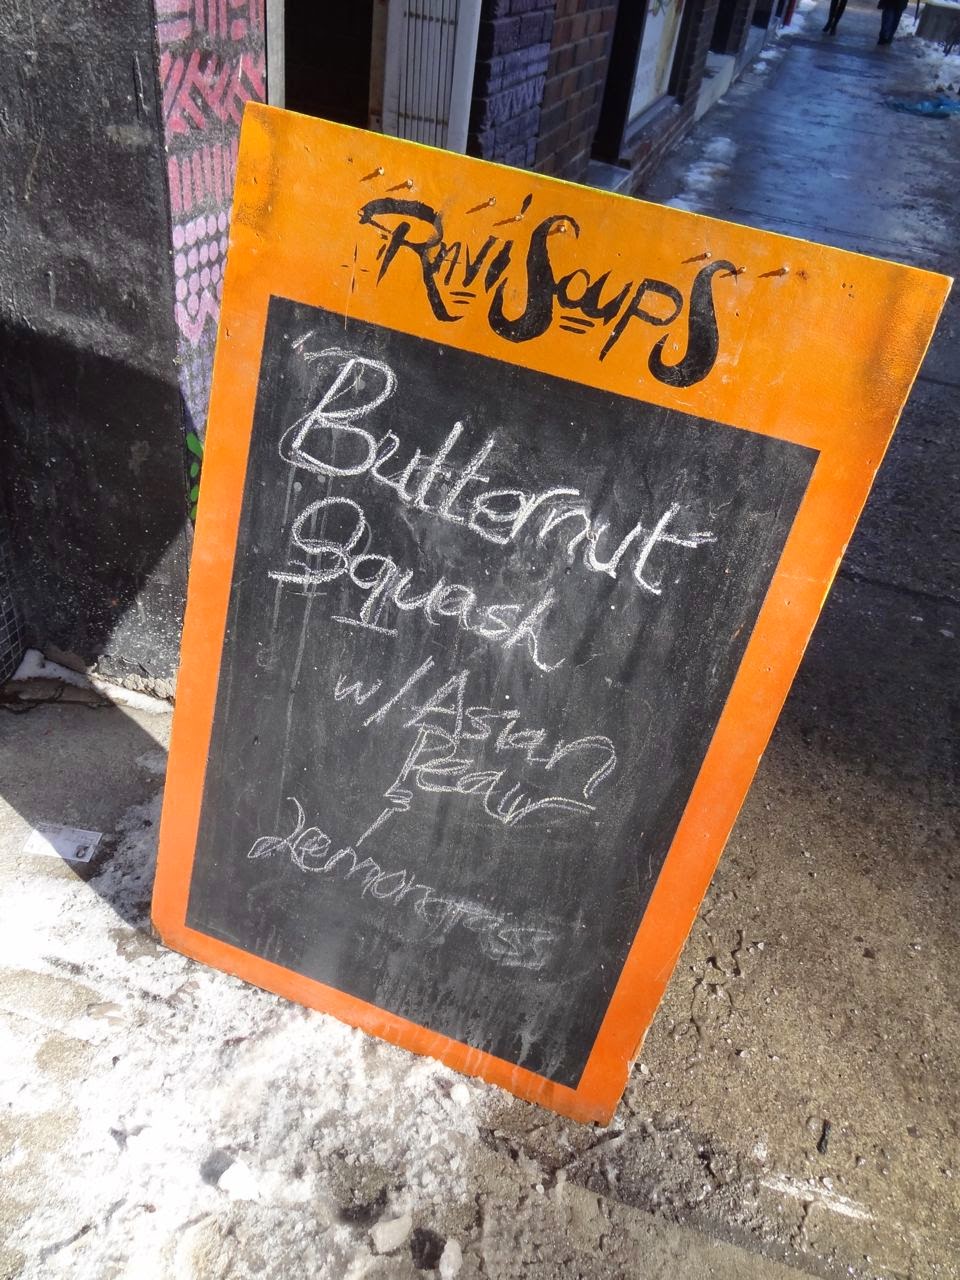 Ravi Soups
"Butternut
Squash
w/ Asian
Pear
&
Lemongrass